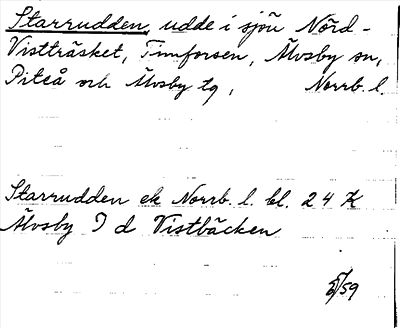 Starrudden, udde i sjön Nörd-
Vistträsket, Timforsen, Älvsby sn,
Piteå och Älvsby tg, Norrb. l.
Starrudden ek Norrb. l. bl. 24 K
Älvsby I d Vistbäcken
/59